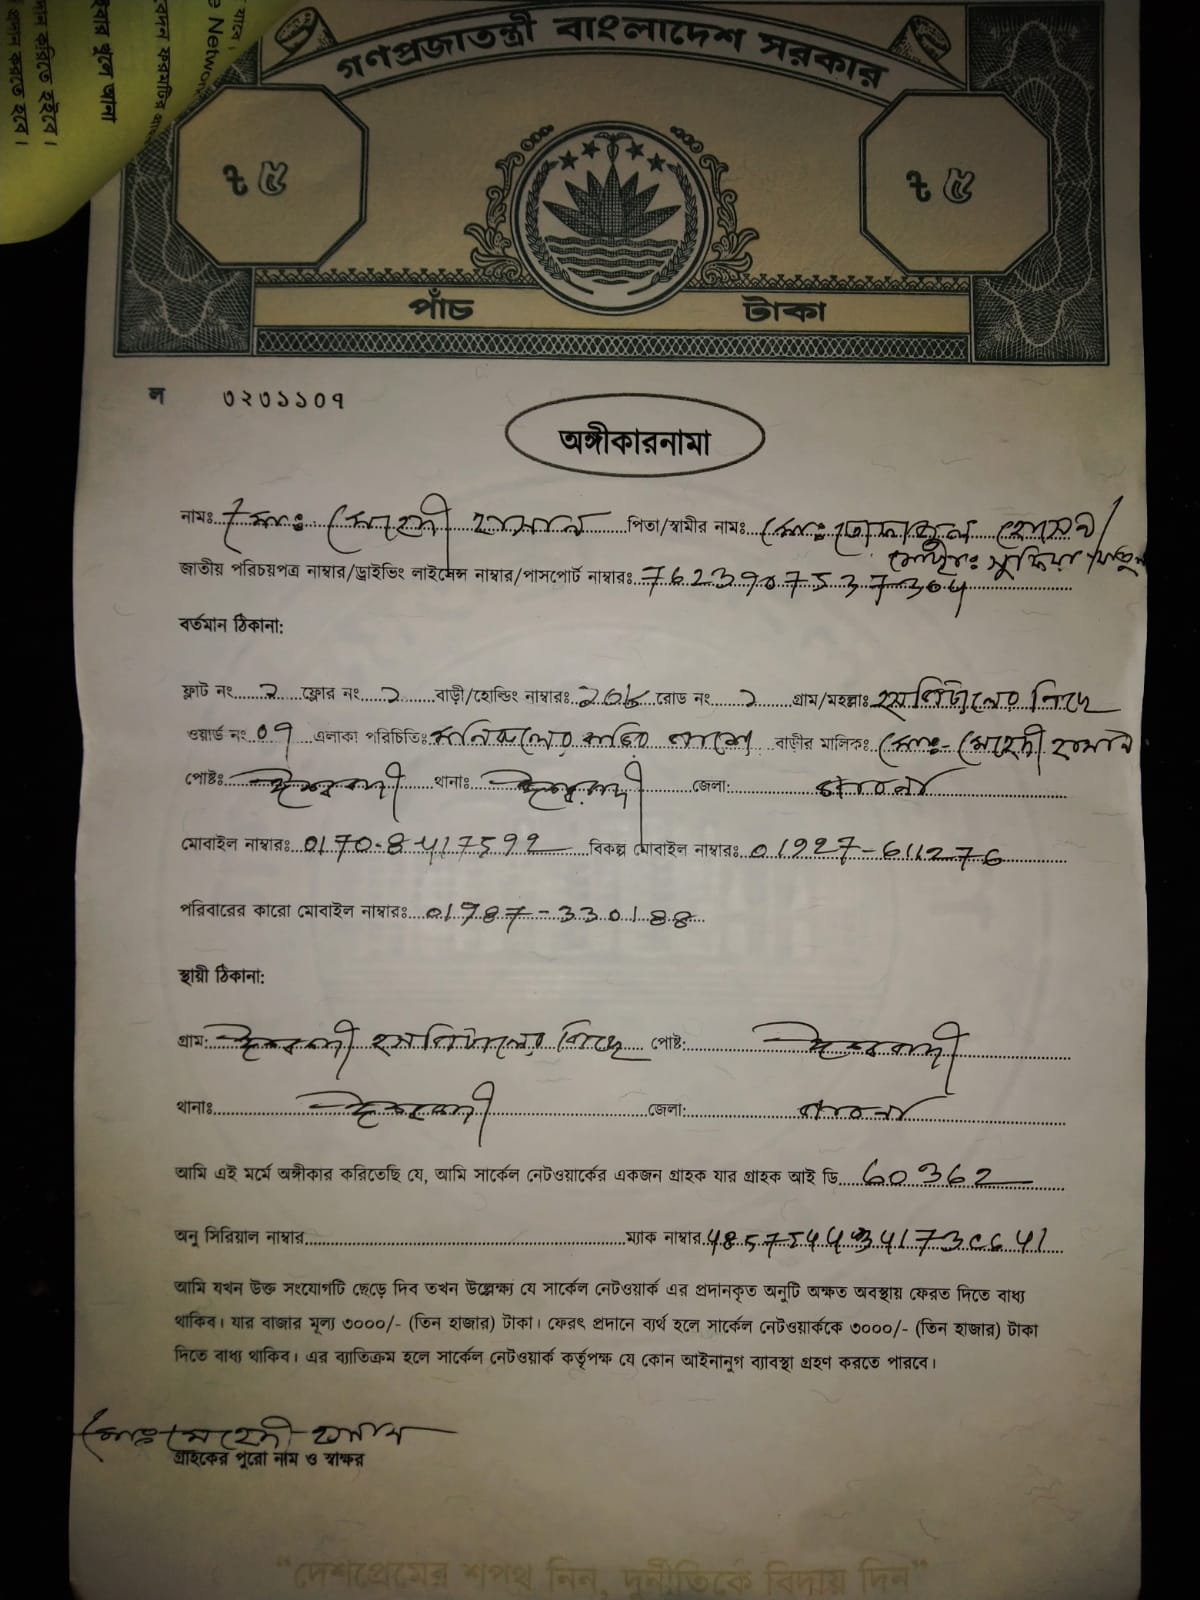 গণপ্রজাতন্ত্রী বাংলাদেশ সরকার
৳ ৫ ৳ ৫
পাঁচ টাকা
ল ৩২৩১১০৭
অঙ্গীকারনামা
নামঃ মোঃ মেহেদী হাসান পিতা/স্বামীর নামঃ মোঃ হোসেন/
জাতীয় পরিচয়পত্র নাম্বার/ড্রাইভিং লাইসেন্স নাম্বার/পাসপোর্ট নাম্বারঃ
বর্তমান ঠিকানা:
ফ্লাট নং ২ ফ্লোর নং ২ বাড়ী/হোল্ডিং নাম্বারঃ রোড নং ২ গ্রাম/মহল্লাঃ হসপিটালের পিছে
ওয়ার্ড নং ০৭ এলাকা পরিচিতিঃ বাড়ীর মালিকঃ মোঃ- মেহেদী হাসান
পোষ্টঃ ঈশ্বরদী থানাঃ ঈশ্বরদী জেলা: পাবনা
মোবাইল নাম্বারঃ বিকল্প মোবাইল নাম্বারঃ
পরিবারের কারো মোবাইল নাম্বারঃ 01787-330188
স্থায়ী ঠিকানা:
গ্রাম: ঈশ্বরদী হসপিটালের পিছে পোষ্ট: ঈশ্বরদী
থানাঃ ঈশ্বরদী জেলা: পাবনা
আমি এই মর্মে অঙ্গীকার করিতেছি যে, আমি সার্কেল নেটওয়ার্কের একজন গ্রাহক যার গ্রাহক আই ডি 60362
অনু সিরিয়াল নাম্বার ম্যাক নাম্বার
আমি যখন উক্ত সংযোগটি ছেড়ে দিব তখন উল্লেক্ষ্য যে সার্কেল নেটওয়ার্ক এর প্রদানকৃত অনুটি অক্ষত অবস্থায় ফেরত দিতে বাধ্য
থাকিব। যার বাজার মূল্য ৩০০০/- (তিন হাজার) টাকা। ফেরৎ প্রদানে ব্যর্থ হলে সার্কেল নেটওয়ার্ককে ৩০০০/- (তিন হাজার) টাকা
দিতে বাধ্য থাকিব। এর ব্যাতিক্রম হলে সার্কেল নেটওয়ার্ক কর্তৃপক্ষ যে কোন আইনানুগ ব্যাবস্থা গ্রহণ করতে পারবে।
মোঃ মেহেদী হাসান
গ্রাহকের পুরো নাম ও স্বাক্ষর
“দেশপ্রেমের শপথ নিন, দুর্নীতিকে বিদায় দিন”